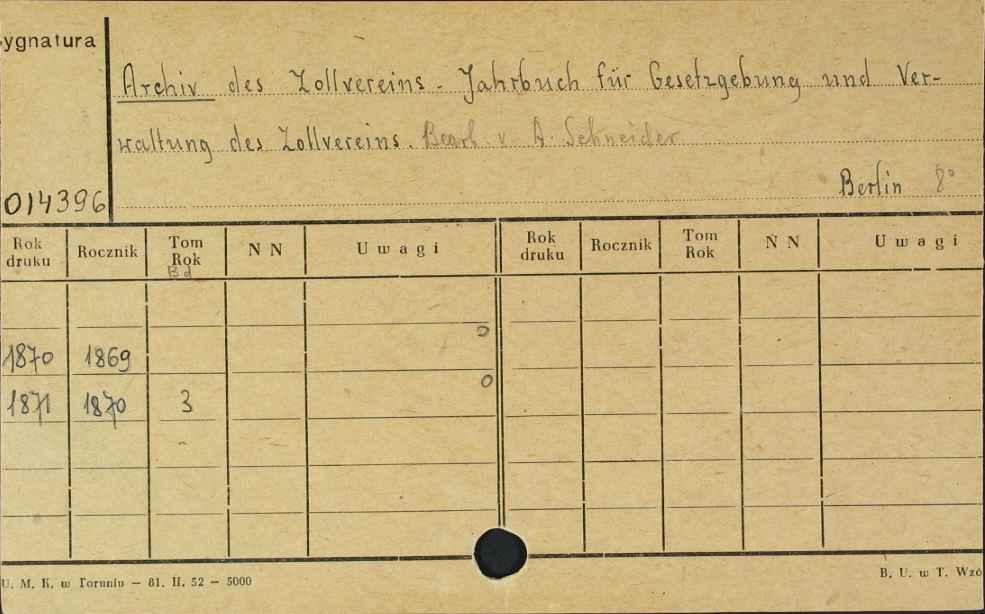 ygnatura
Archiv des Zollvereins - Jahrbuch für Gesetzgebung und Ver-
waltung des Zollvereins. Bearb. v. A. Schneider
Berlin 8°
014396
Rok druku Rocznik Tom Rok N N Uwagi Rok druku Rocznik Tom Rok N N Uwagi
Bd
1870 1869 0
1871 1870 3 0
U. M. K. w Toruniu — 81. II. 52 — 5000
B. U. w T. Wzó